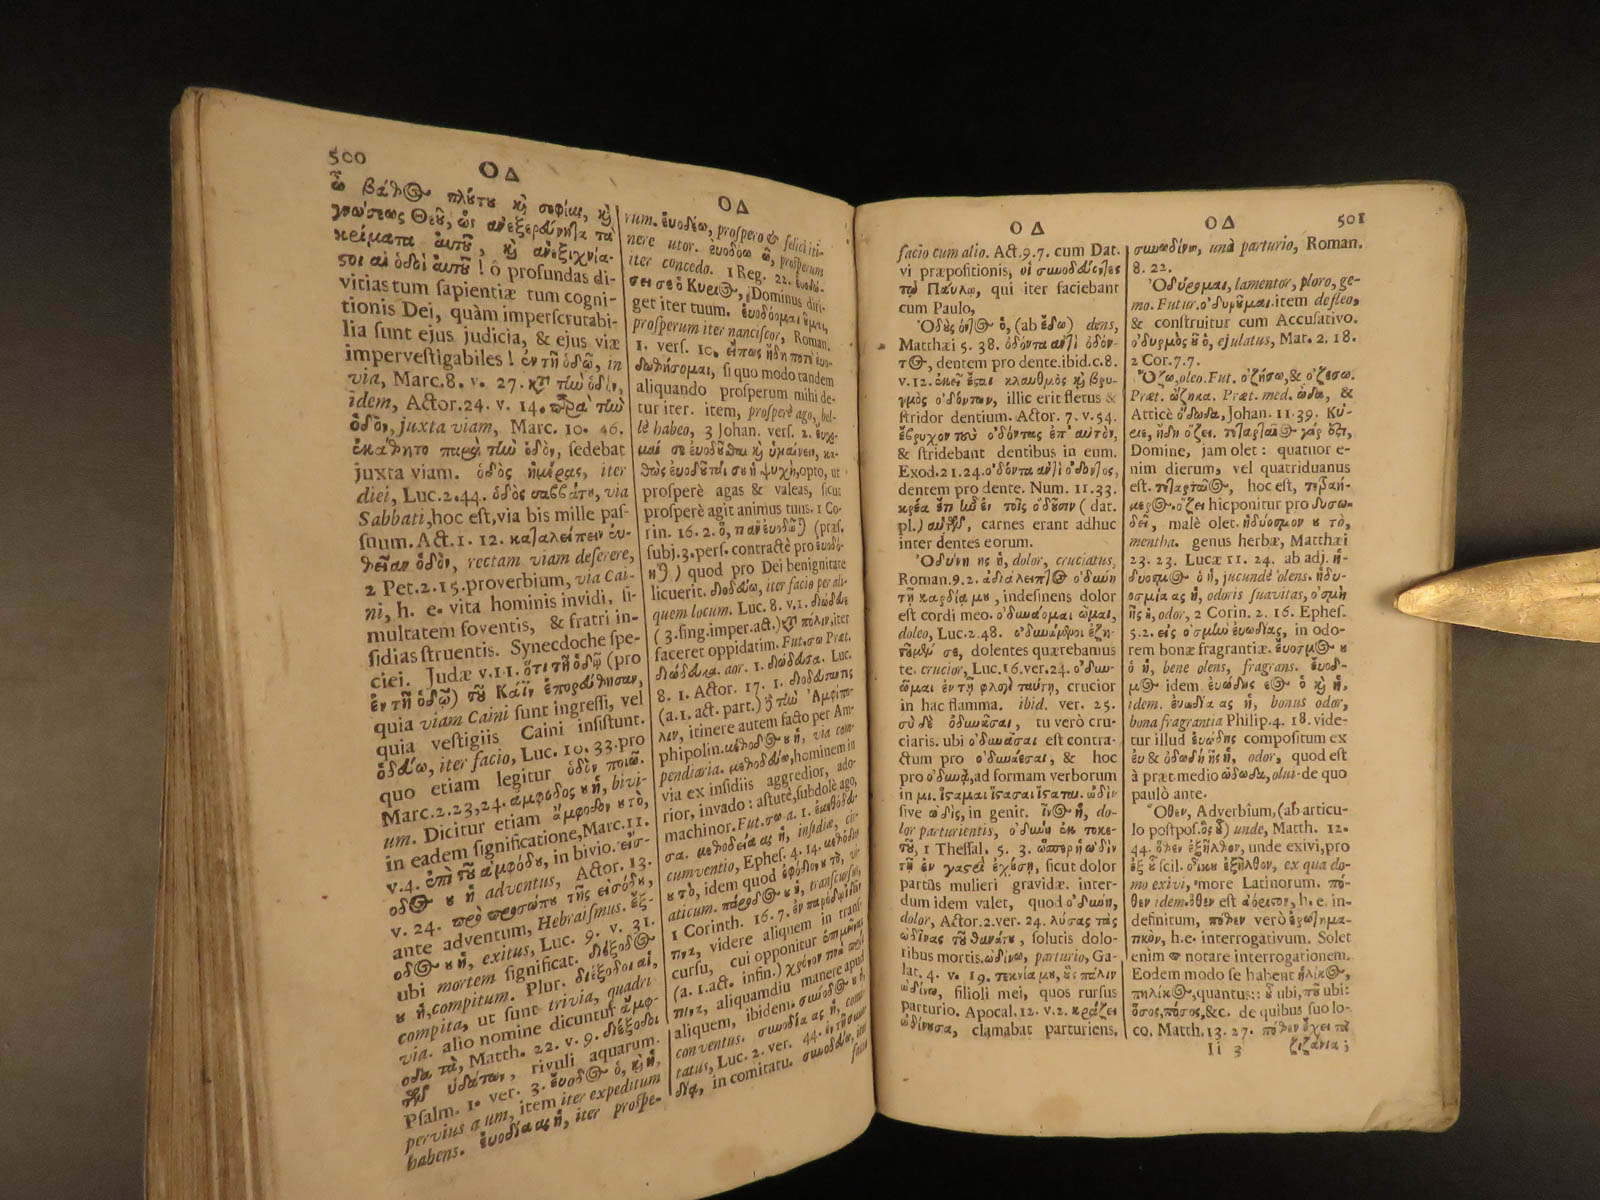 500
ΟΔ
ὦ βάθος πλούτου καὶ σοφίας, καὶ
γνώσεως Θεοῦ, ὡς ἀνεξερεύνητα τὰ
κρίματα αὐτοῦ, καὶ ἀνεξιχνία-
στοι αἱ ὁδοὶ αὐτοῦ! ô profundas di-
vitias tum sapientiæ tum cogni-
tionis Dei, quàm imperscrutabi-
lia sunt ejus judicia, & ejus viæ
impervestigabiles! ἐν τῇ ὁδῷ, in
via, Marc. 8. v. 27. κατὰ τὴν ὁδὸν,
idem, Actor. 24. v. 14. παρὰ τὴν
ὁδὸν, juxta viam, Marc. 10. 46.
ἐκάθητο παρὰ τὴν ὁδὸν, sedebat
juxta viam. ὁδὸς ἡμέρας, iter
diei, Luc. 2. 44. ὁδὸς σαββάτου, via
Sabbati, hoc est, via bis mille pas-
suum. Act. 1. 12. καταλείπειν εὐ-
θεῖαν ὁδὸν, rectam viam deserere,
2 Pet. 2. 15. proverbium, via Cai-
ni, h. e. vita hominis invidi, si-
multatem foventis, & fratri in-
sidias struentis. Synecdoche spe-
ciei. Judæ v. 11. ὅτι τῇ ὁδῷ (pro
ἐν τῇ ὁδῷ) τοῦ Κάϊν ἐπορεύθησαν,
quia viam Caini sunt ingressi, vel
quia vestigiis Caini insistunt.
ὁδεύω, iter facio, Luc. 10. 33. pro
quo etiam legitur ὁδὸν ποιῶ.
Marc. 2. 23, 24. ἄμφοδος ου ἡ, bivi-
um. Dicitur etiam ἄμφοδον ου τὸ,
in eadem significatione, Marc. 11.
v. 4. ἐπὶ τοῦ ἀμφόδου, in bivio. εἴσ-
οδος ου ἡ adventus, Actor. 13.
v. 24. πρὸ προσώπου τῆς εἰσόδου,
ante adventum, Hebraismus. ἔξ-
οδος ου ἡ, exitus, Luc. 9. v. 31.
ubi mortem significat. διέξοδος
ου ἡ, compitum. Plur. διέξοδοι αἱ,
compita, ut sunt trivia, quadri-
via. alio nomine dicuntur ἄμφ-
οδα τὰ, Matth. 22. v. 9. διέξοδοι
τῶν ὑδάτων, rivuli aquarum.
Psalm. 1. ver. 3. εὔοδος ὁ, καὶ ἡ,
pervius a um, item iter expeditum
habens. εὐοδία ας ἡ, iter prospe-
ΟΔ
rum. εὐοδέω, prospero & felici iti-
nere utor. εὐοδόω ῶ, prosperum
iter concedo. 1 Reg. 22. εὐοδώ-
σει σε ὁ Κύριος, Dominus diri-
get iter tuum. εὐοδόομαι οῦμαι,
prosperum iter nanciscor, Roman.
1. vers. 10. εἴπως ἤδη ποτὲ εὐο-
δωθήσομαι, si quo modo tandem
aliquando prosperum mihi de-
tur iter. item, prosperè ago, bel-
lè habeo, 3 Johan. vers. 2. εὔχο-
μαί σε εὐοδοῦσθαι καὶ ὑγιαίνειν, κα-
θὼς εὐοδοῦταί σου ἡ ψυχὴ, opto, ut
prosperè agas & valeas, sicut
prosperè agit animus tuus. 1 Co-
rin. 16. 2. ὅ, τι ἂν εὐοδῶται (præs.
subj. 3. pers. contractè pro εὐοδό-
ηται) quod pro Dei benignitate
licuerit. διοδεύω, iter facio per ali-
quem locum. Luc. 8. v. 1. διώδευε
(3. sing. imper. act.) κατὰ πόλιν, iter
faceret oppidatim. Fut. σω Præt.
διώδευκα. aor. 1. διώδευσα. Luc.
8. 1. Actor. 17. 1. διοδεύσαντες
(a. 1. act. part.) δὲ τὴν Ἀμφίπο-
λιν, itinere autem facto per Am-
phipolin. μέθοδος ου ἡ, via com-
pendiaria. μεθοδεύω, hominem in
via ex insidiis aggredior, ado-
rior, invado: astutè, subdolè ago,
machinor. Fut. σω a. 1. ἐμεθόδευ-
σα. μεθοδεία ας ἡ, insidiæ, cir-
cumventio, Ephes. 4. 14.
ου τὸ, idem quod ἐφόδιον ου τὸ, vi-
aticum. πάροδος ου ἡ, transcursus,
1 Corinth. 16. 7. ἐν παρόδῳ ἰδεῖν
τινα, videre aliquem in trans-
cursu, cui opponitur ἐπιμεῖναι
(a. 1. act. infin.) χρόνον τινὰ πρός
τινα, aliquamdiu manere apud
aliquem, ibidem. σύνοδος ου ἡ,
conventus. συνοδία ας ἡ, comi-
tatus, Luc. 2. ver. 44. ἐν τῇ συνο-
δίᾳ, in comitatu. συνοδεύω, iter
facio
501
ΟΔ
facio cum alio. Act. 9. 7. cum Dat.
vi præpositionis, οἱ συνοδεύοντες
τῷ Παύλῳ, qui iter faciebant
cum Paulo,
Ὀδοὺς όντος ὁ, (ab ἔδω) dens,
Matthæi 5. 38. ὀδόντα ἀντὶ ὀδόν-
τος, dentem pro dente. ibid. c. 8.
v. 12. ἐκεῖ ἔσται κλαυθμὸς καὶ βρυ-
γμὸς ὀδόντων, illic erit fletus &
stridor dentium. Actor. 7. v. 54.
ἔβρυχον τοὺς ὀδόντας ἐπ' αὐτὸν,
& stridebant dentibus in eum.
Exod. 21. 24. ὀδόντα ἀντὶ ὀδόντος,
dentem pro dente. Num. 11. 33.
κρέα ἔτι ἦν ἐν τοῖς ὀδοῦσιν (dat.
pl.) αὐτῶν, carnes erant adhuc
inter dentes eorum.
Ὀδύνη ης ἡ, dolor, cruciatus,
Roman. 9. 2. ἀδιάλειπτος ὀδύνη
τῇ καρδίᾳ μου, indesinens dolor
est cordi meo. ὀδυνάομαι ῶμαι,
doleo, Luc. 2. 48. ὀδυνώμενοι ἐζη-
τοῦμέν σε, dolentes quærebamus
te. crucior, Luc. 16. ver. 24. ὀδυν-
ῶμαι ἐν τῇ φλογὶ ταύτῃ, crucior
in hac flamma. ibid. ver. 25.
σὺ δὲ ὀδυνᾶσαι, tu verò cru-
ciaris. ubi ὀδυνᾶσαι est contra-
ctum pro ὀδυνάεσαι, & hoc
pro ὀδυνᾷ, ad formam verborum
in μι. ἵσταμαι ἵστασαι ἵσταται. ὠδὶν
sive ὠδὶς, in genit. ῖνος ἡ, do-
lor parturientis, ὀδύνη ἐκ τοκε-
τοῦ, 1 Thessal. 5. 3. ὥσπερ ἡ ὠδὶν
τῇ ἐν γαστρὶ ἐχούσῃ, sicut dolor
partûs mulieri gravidæ. inter-
dum idem valet, quod ὀδύνη,
dolor, Actor. 2. ver. 24. λύσας τὰς
ὠδῖνας τοῦ θανάτου, solutis dolo-
ribus mortis. ὠδίνω, parturio, Ga-
lat. 4. v. 19. τεκνία μου, οὓς πάλιν
ὠδίνω, filioli mei, quos rursus
parturio. Apocal. 12. v. 2. κράζει
ὠδίνουσα, clamabat parturiens.
ΟΔ
συνωδίνω, unà parturio, Roman.
8. 22.
Ὀδύρομαι, lamentor, ploro, ge-
mo. Futur. ὀδυροῦμαι. item defleo,
& construitur cum Accusativo.
ὀδυρμὸς οῦ ὁ, ejulatus, Mat. 2. 18.
2 Cor. 7. 7.
Ὄζω, oleo. Fut. ὀζήσω, & ὀζέσω.
Præt. ὤζηκα. Præt. med. ὦδα, &
Atticè ὄδωδα, Johan. 11. 39. Κύ-
ριε, ἤδη ὄζει. τεταρταῖος γάρ ἐστι,
Domine, jam olet: quatuor e-
nim dierum, vel quatriduanus
est. τεταρταῖος, hoc est, τετραή-
μερος. ὄζει hic ponitur pro δυσω-
δεῖ, malè olet. ἡδύοσμον ου τὸ,
mentha. genus herbæ, Matthæi
23. 23. Lucæ 11. 24. ab adj. ἡ-
δύοσμος ὁ ἡ, jucundè olens. ἡδυ-
οσμία ας ἡ, odoris suavitas, ὀσμὴ
ῆς ἡ, odor, 2 Corin. 2. 16. Ephes.
5. 2. εἰς ὀσμὴν εὐωδίας, in odo-
rem bonæ fragrantiæ. εὔοσμος ου
ὁ ἡ, bene olens, fragrans. εὔοδ-
μος idem. εὐώδης εος ὁ καὶ ἡ,
idem. εὐωδία ας ἡ, bonus odor,
bona fragrantia Philip. 4. 18. vide-
tur illud εὐώδης compositum ex
εὖ & ὀδωδὴ ῆς ἡ, odor, quod est
à præt medio ὤδωδα, olui. de quo
paulò ante.
Ὅθεν, Adverbîum, (ab articu-
lo postpos. ὃς οὗ) unde, Matth. 12.
44. ὅθεν ἐξῆλθον, unde exivi, pro
ἐξ οὗ scil. οἴκου ἐξῆλθον, ex qua do-
mo exivi, more Latinorum. πό-
θεν idem. ὅθεν est ἀόριστον, h. e. in-
definitum, πόθεν verò ἐρωτημα-
τικὸν, h. e. interrogativum. Solet
enim π notare interrogationem.
Eodem modo se habent ἡλίκος,
πηλίκος, quantus:: οὗ ubi, ποῦ ubi:
ὅσος, πόσος, &c. de quibus suo lo-
co. Matth. 13. 27. πόθεν ἔχει τὰ
Ii 3 ζιζάνια;